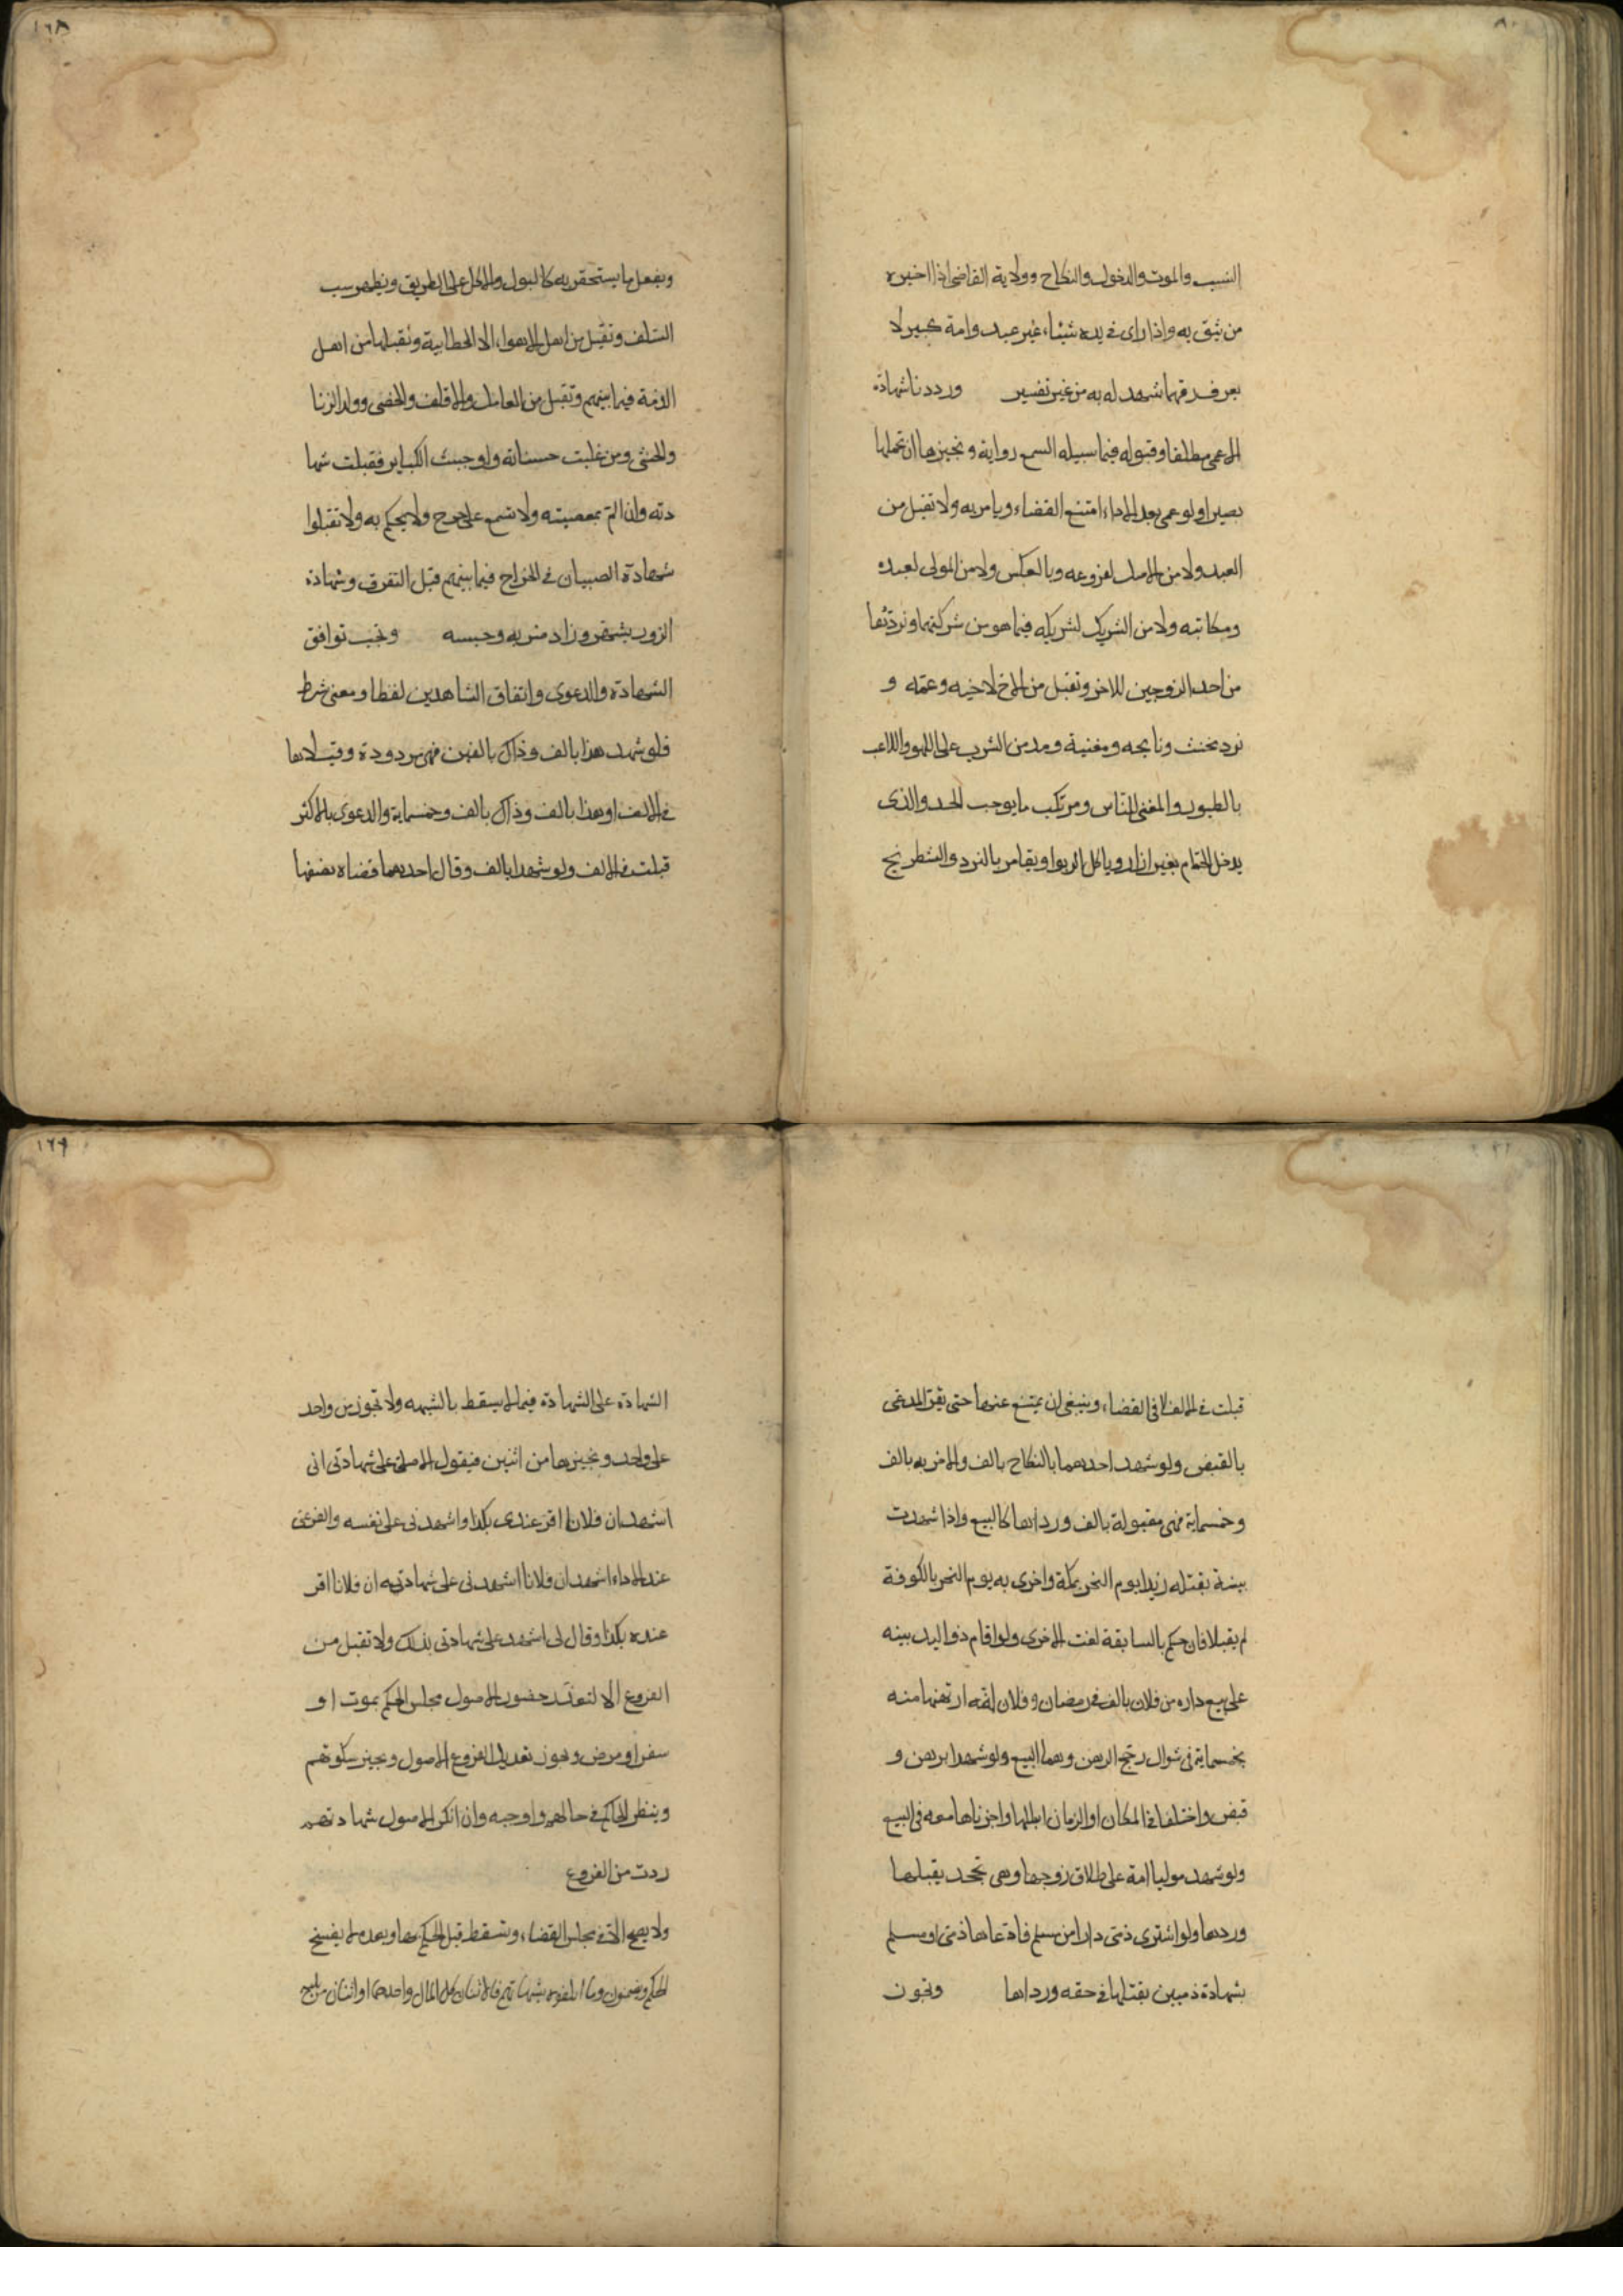 النسب والموت والدخول والنكاح وولاية القاضى اذا اخبره
من يثق به واذا راى فى يده شيئا، غير عبد وامة كبير لا
يعرف رقهما شهد له به من غير تفسير ورددنا شهادة
الاعمى مطلقا وقبوله فيما سبيله السمع رواية ونجيزها ان تحملها
بصيرا ولو عمى بعد الاداء امتنع القضاء ويامر به ولا تقبل من
العبد ولا من الاصل لفروعه وبالعكس ولا من المولى لعبده
ومكاتبه ولا من الشريك لشريكه فيما هو من شركتهما ونردّها
من احد الزوجين للاخر وتقبل من الاخ لاخيه وعمّه و
نرد مخنث ونايحه ومغنية ومدمن الشرب على اللهو واللاعب
بالطيور والمغنى للناس ومرتكب ما يوجب الحد والذى
يدخل الحمّام بغير ازار وياكل الربوا ويقامر بالنرد والشطرنج
١٦٨
ويفعل ما يستحقر به كالبول والاكل على الطريق ويظهر سب
السّلف وتقبل من اهل الاهوا، الا الخطابية ونقبلها من اهل
الذمّة فيما بينهم وتقبل من العامل والاقلف والخصى وولد الزنا
والخنثى ومن غلبت حسناته واجتنب الكباير فقبلت شها
دته وان المّ بمعصيته ولا تسمع على جرح ولا يحكم به ولا تقبلوا
شهادة الصبيان فى الجراح فيما بينهم قبل التفرق وشهادة
الزور يشهّر وزاد ضربه وحبسه ونجب توافق
الشهادة والدعوى واتفاق الشاهدين لفظا ومعنى شرط
فلو شهد هذا بالف وذاك بالفين فهى مردودة وقبلاها
فى الالف او هذا بالف وذاك بالف وخمسماية والدعوى بالاكثر
قبلت فى الالف ولو شهدا بالف وقال احدهما قضاه نصفها
قبلت فى الالف لا فى القضا، وينبغى ان يمتنع عنها حتى يقرّ المدعى
بالقبض ولو شهد احدهما بالنكاح بالف والاخر به بالف
وخمسماية فهى مقبولة بالف ورداها كالبيع واذا شهدت
بينة بقتله زيدا يوم النحر بمكة واخرى به يوم النحر بالكوفة
لم يقبلا فان حكم بالسابقة لغت الاخرى ولو اقام ذو اليد بينه
على بيع داره من فلان بالف فى رمضان وفلان انّه ارتهنها منه
بخمسماية فى شوال رجّح الرهن وهما البيع ولو شهدا برهن و
قبض واختلفا فى المكان او الزمان ابطلها واجزناها معه فى البيع
ولو شهد موليا امة على طلاق زوجها وهى تجحد يقبلها
وردها ولو اشترى ذمّى دارا من مسلم فادّعاها ذمّى او مسلم
بشهادة ذميين يقبلها فى حقه ورداها وتجوز
١٦٩
الشهادة على الشهادة فيما لا يسقط بالشبهه ولا تجوز من واحد
على واحد ونجيزها من اثنين فيقول الاصل على شهادتى انى
اشهد ان فلانا اقر عندى بكذا واشهدنى على نفسه والفرع
عند الاداء اشهد ان فلانا اشهدنى على شهادته ان فلانا اقر
عنده بكذا وقال لى اشهد على شهادتى بذلك ولا تقبل من
الفروع الا لتعذّر حضور الاصول مجلس الحكم بموت او
سفر او مرض ويجوز تعديل الفروع الاصول ويجيز سكوتهم
وينظر الحاكم فى حالهم واوجبه وان انكر الاصول شهادتهم
ردت من الفروع
ولا يصح الا فى مجلس القضا، وتسقط قبل الحكم بها وبعده لم يفسخ
الحكم ويضمنون ما اتلفوه بشهادتهم فالاثنان كل المال واحدهما او اثنان من اربع